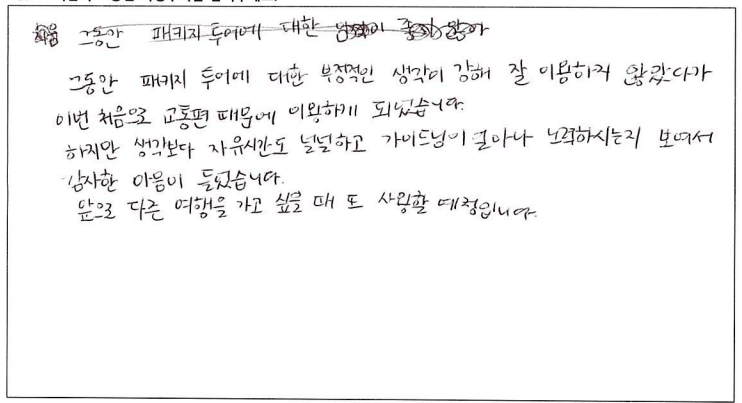 그동안 패키지 투어에 대한
그동안 패키지 투어에 대한 부정적인 생각이 강해 잘 이용하지 않았다가
이번 처음으로 교통편 때문에 이용하게 되었습니다.
하지만 생각보다 자유시간도 널널하고 가이드님이 얼마나 노력하시는지 보여서
감사한 마음이 들었습니다.
앞으로 다른 여행을 가고 싶을 때 또 사용할 예정입니다.